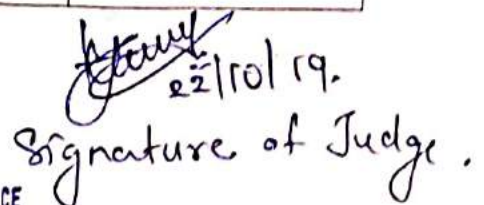 22/10/19.
Signature of Judge.
CE